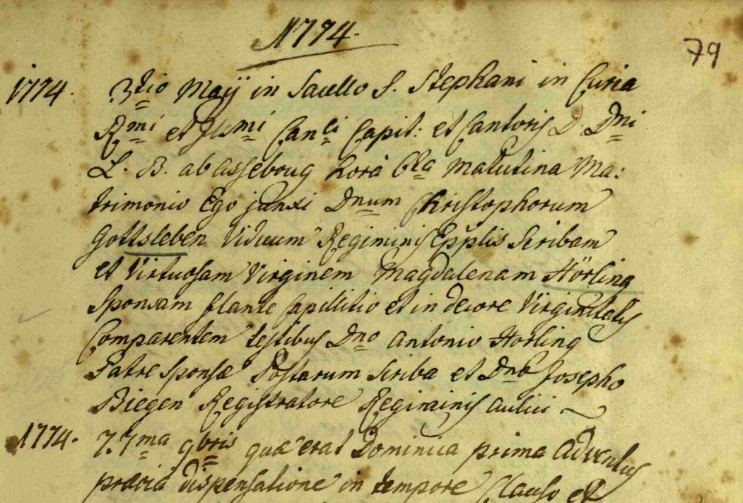 1774.
79
1774. 3tio Maÿ in Sacello S. Stephani in Curia
Rmi et Illmi Can.ci Capit: et Cantoris D. Dni
L. B. ab Asseboug hora 6ta matutina Ma:
trimonio Ego junxi Dnum Christophorum
Gottsleben Viduum Regiminis Epplis Scribam
et Virtuosam Virginem Magdalenam Hörling
Sponsam flante Capillitio et in decore Virginitatis
Comparentem testibus Dno Antonio Hörling
Patre Sponsæ Postarum Scriba et Dno Josepho
Biegen Registratore Regiminis aulici
1774. 7.7ma 9bris quæ erat Dominica prima adventus
prævia dispensatione in tempore Clauso et